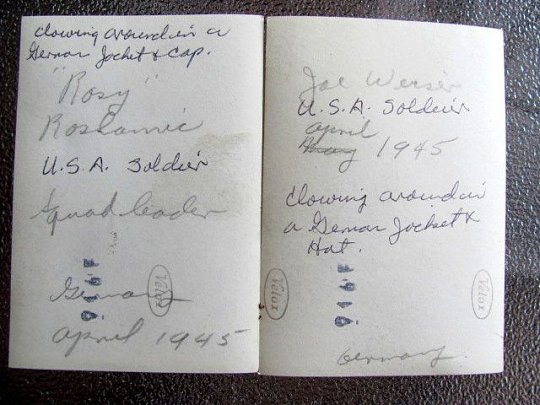 clowing around in a
German Jacket & Cap.
"Rosy"
Roslamic
U.S.A. Soldier
Squad leader
916F
Velox
Germany
April 1945
Joe Weiser
U.S.A. Soldier
April
May 1945
clowing around in
a German Jacket &
Hat.
916F
Velox
Velox
Germany.